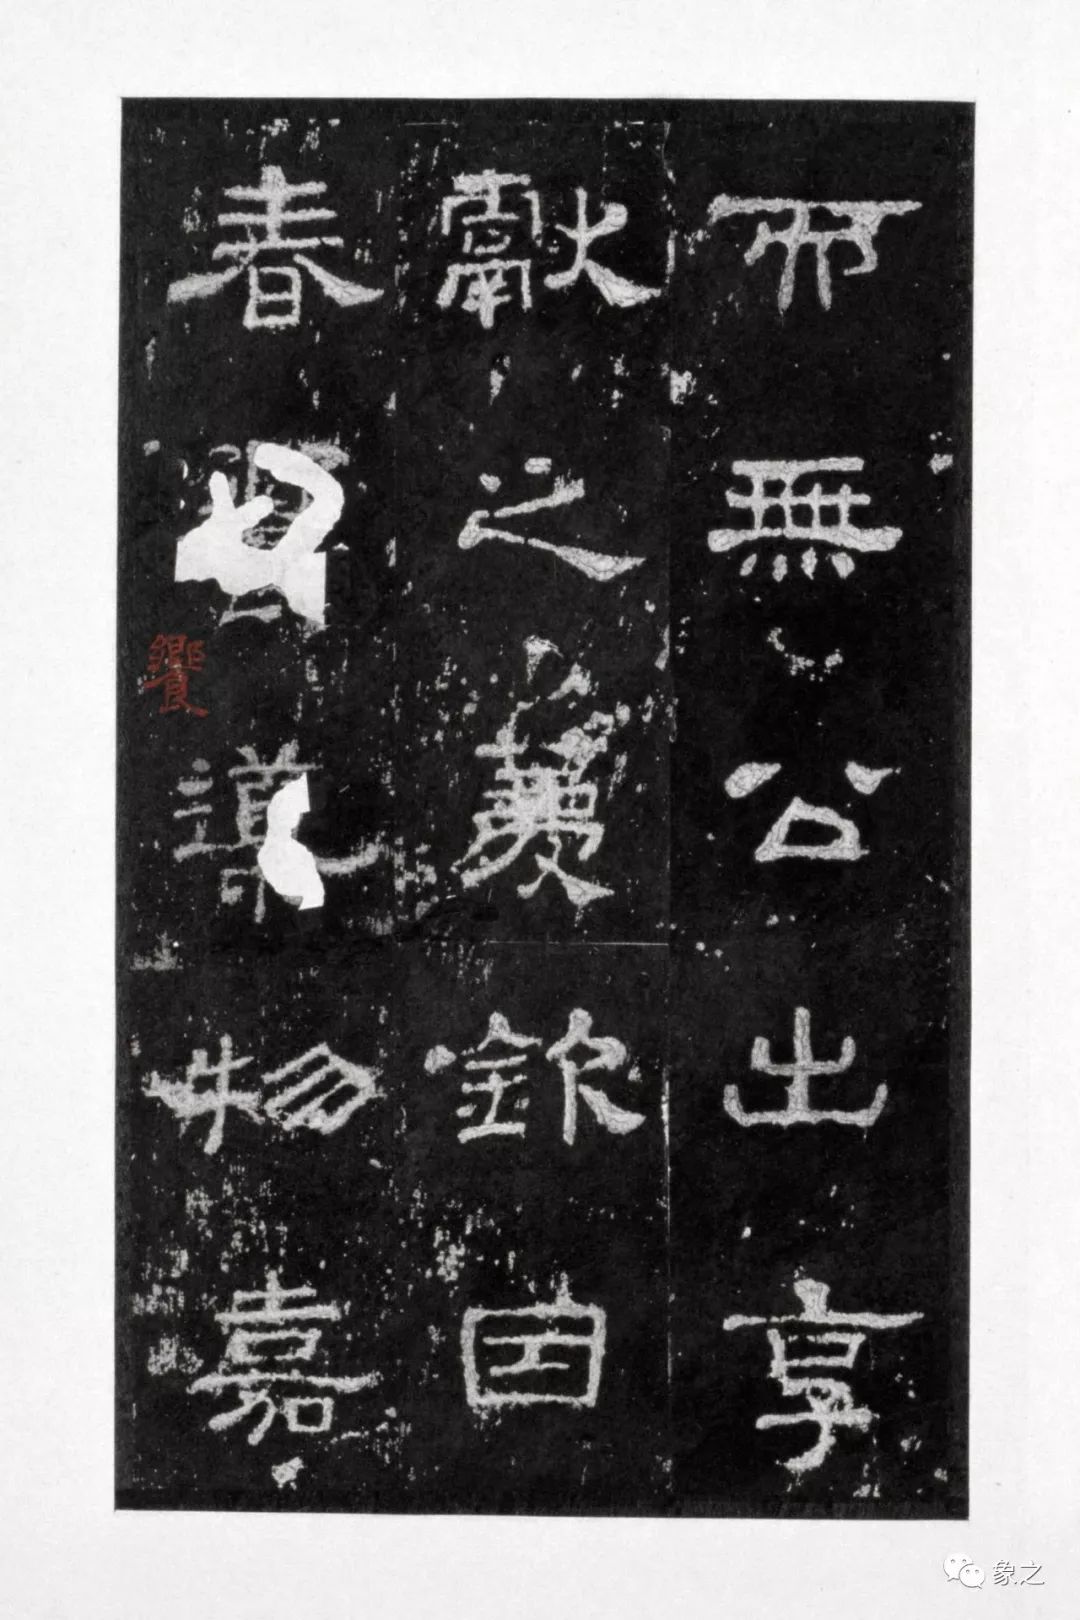 而無公出享
獻之薦欽因
春導物嘉
饗
象之